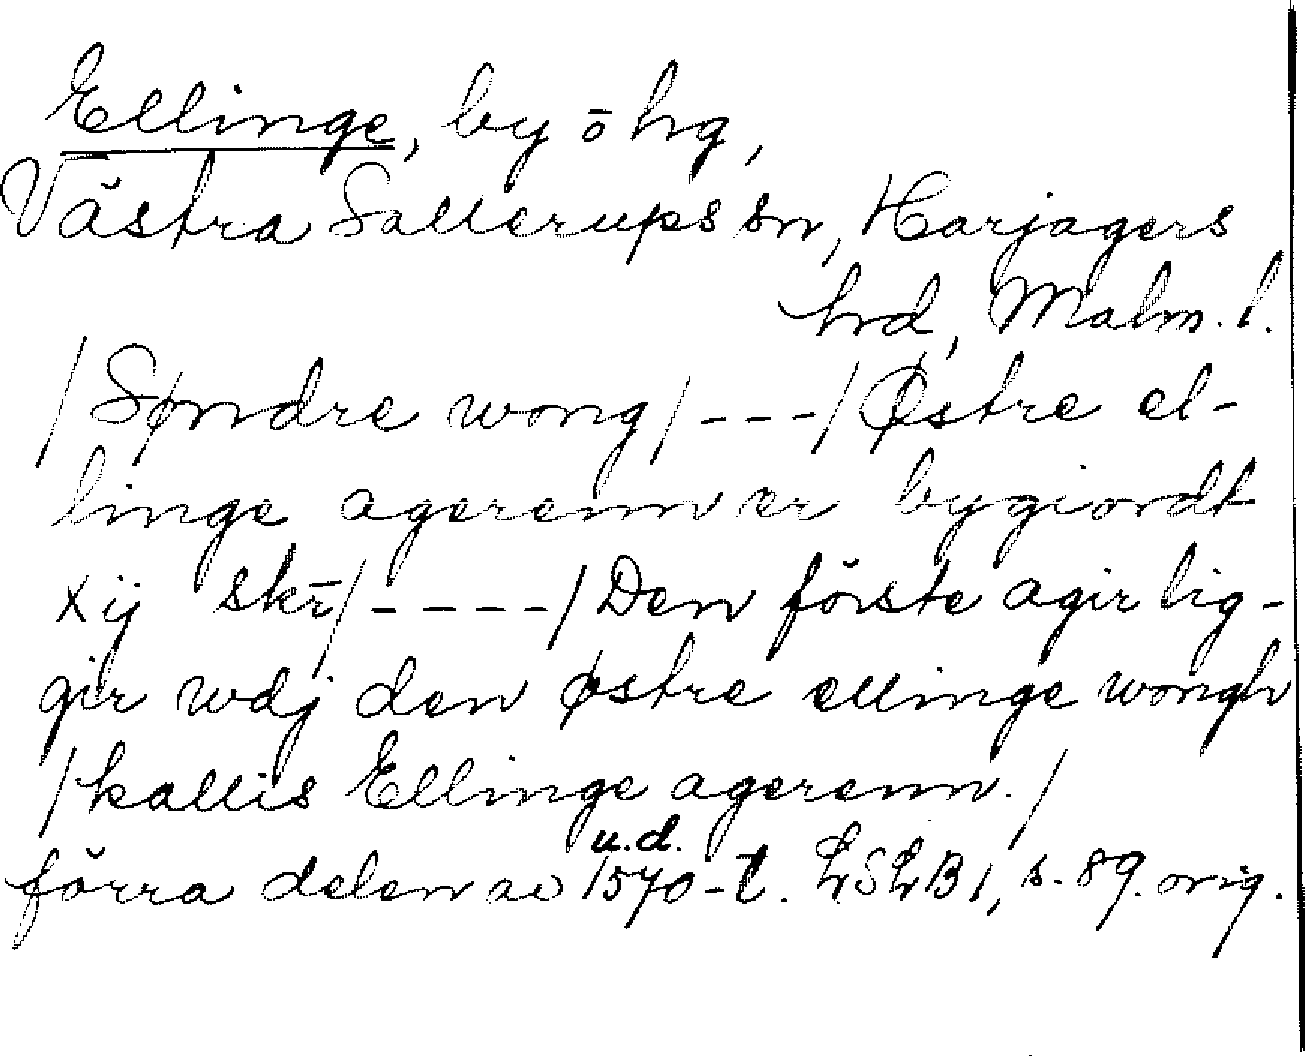 Ellinge, by ō hrg,
Västra Sallerups sn, Harjagers
hrd, Malm. l.
/Søndre wong/---/Østre el-
linge agerenn er bygiordt
xij skr̄/----/Den förste agir lig-
gir wdj den østre ellinge wongh
/kallis Ellinge agerenn./
u.d.
förra delen av 1570-t. LSLB 1, s. 89. orig.